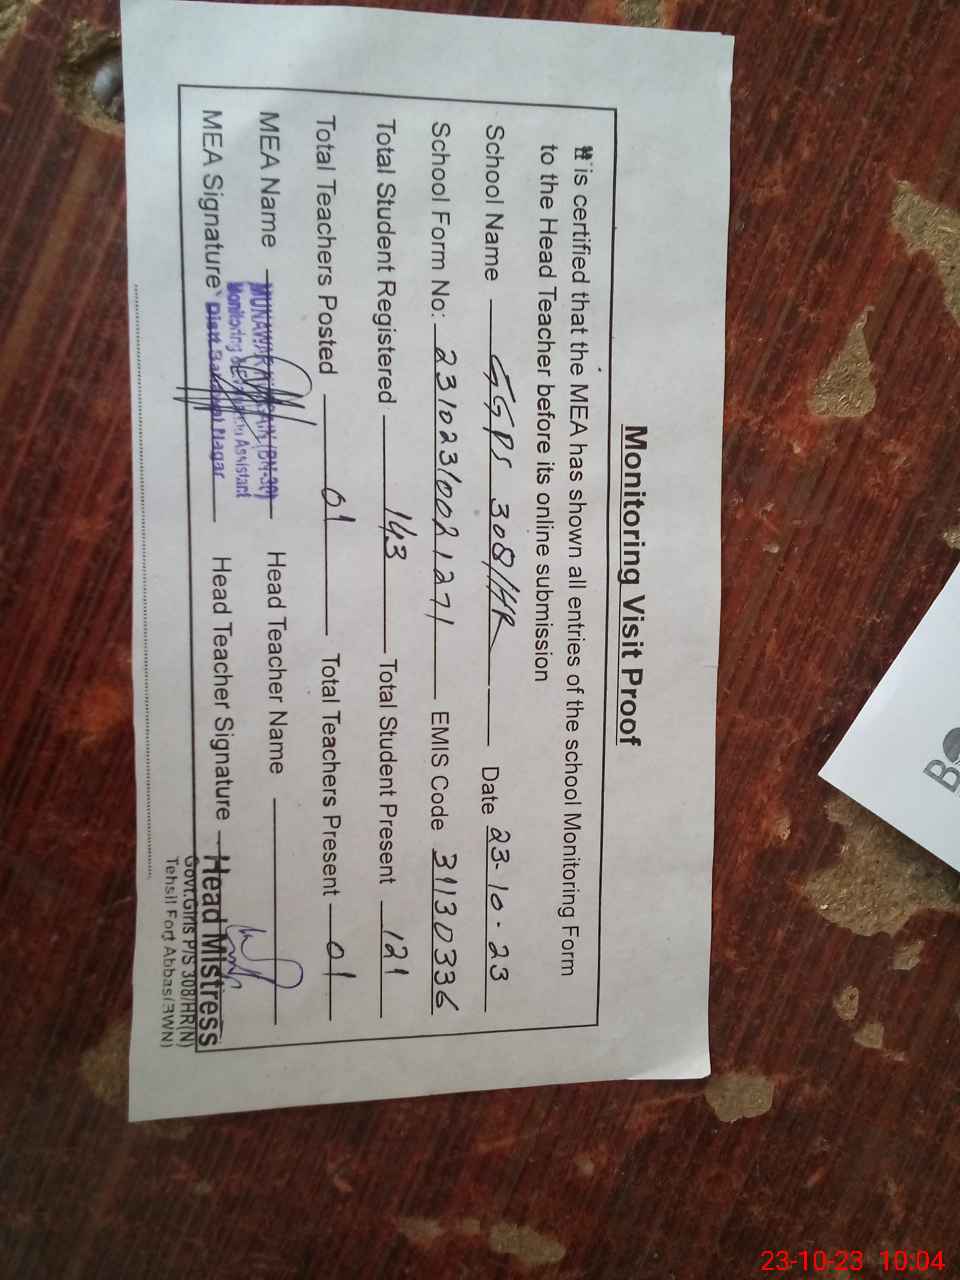 Monitoring Visit Proof
It is certified that the MEA has shown all entries of the school Monitoring Form
to the Head Teacher before its online submission
School Name GGPS 308/HR Date 23-10-23
School Form No: 23102310021271 EMIS Code 31130336
Total Student Registered 143 Total Student Present 121
Total Teachers Posted 01 Total Teachers Present 01
MEA Name MUNAWAR (BN-39) Head Teacher Name
Monitoring Assistant
MEA Signature Distt Nagar Head Teacher Signature Head Mistress
Govt.Girls P/S 308/HR(N)
Tehsil Fort Abbas(BWN)
23-10-23 10:04